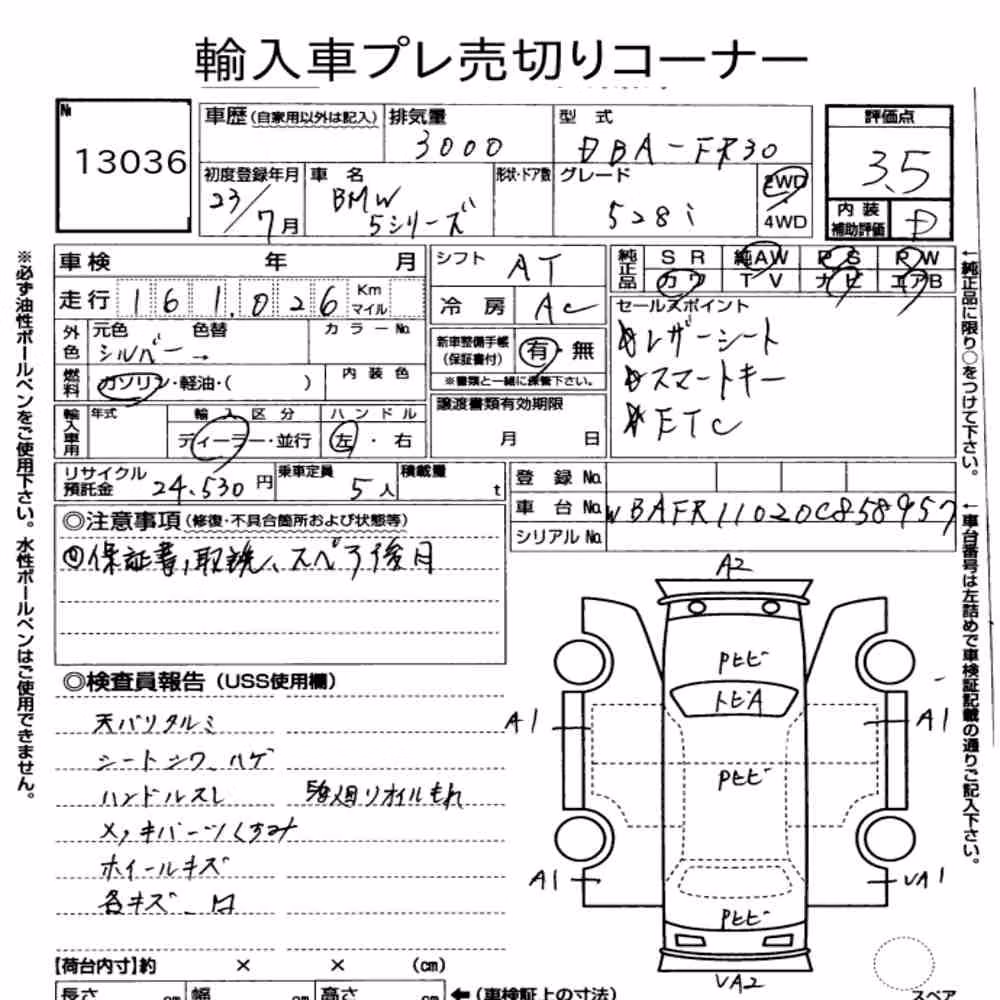 輸入車プレ売切りコーナー
№ 13036
車歴 (自家用以外は記入)
排気量 3000
型式 DBA-FR30
評価点 3.5
内装補助評価 D
初度登録年月 23/7月
車名 BMW 5シリーズ
形状・ドア数
グレード 528i
2WD
4WD
※必ず油性ボールペンをご使用下さい。水性ボールペンはご使用できません。
車検 年 月
シフト AT
純正品 SR 純AW PS PW
カワ TV ナビ エアB
走行 161,026 Km マイル
冷房 AC
セールスポイント
☆レザーシート
☆スマートキー
☆ETC
外色 元色 色替 カラーNo
シルバー→
新車整備手帳(保証書付) 有・無
※書類と一緒に保管下さい。
燃料 ガソリン・軽油・( ) 内装色
譲渡書類有効期限
月 日
輸入車用 年式 輸入区分 ハンドル
ディーラー・並行 左・右
リサイクル預託金 24,530円
乗車定員 5人
積載量 t
登録No.
車台No. WBAFR11020C858957
シリアルNo.
←純正品に限り○をつけて下さい。
←車台番号は左詰めで車検証記載の通りご記入下さい。
◎注意事項 (修復・不具合箇所および状態等)
◎保証書、取説、スペア後日
◎検査員報告 (USS使用欄)
天バリタルミ
シートシワ、ハゲ
ハンドルスレ
メッキパーツくすみ
ホイールキズ
各キズ、凹
A2
Pヒビ
トビA
A1
A1
Pヒビ
A1
VA1
Pヒビ
VA2
【荷台内寸】約 × × (cm)
長さ cm 幅 cm 高さ cm ←(車検証上の寸法)
スペア